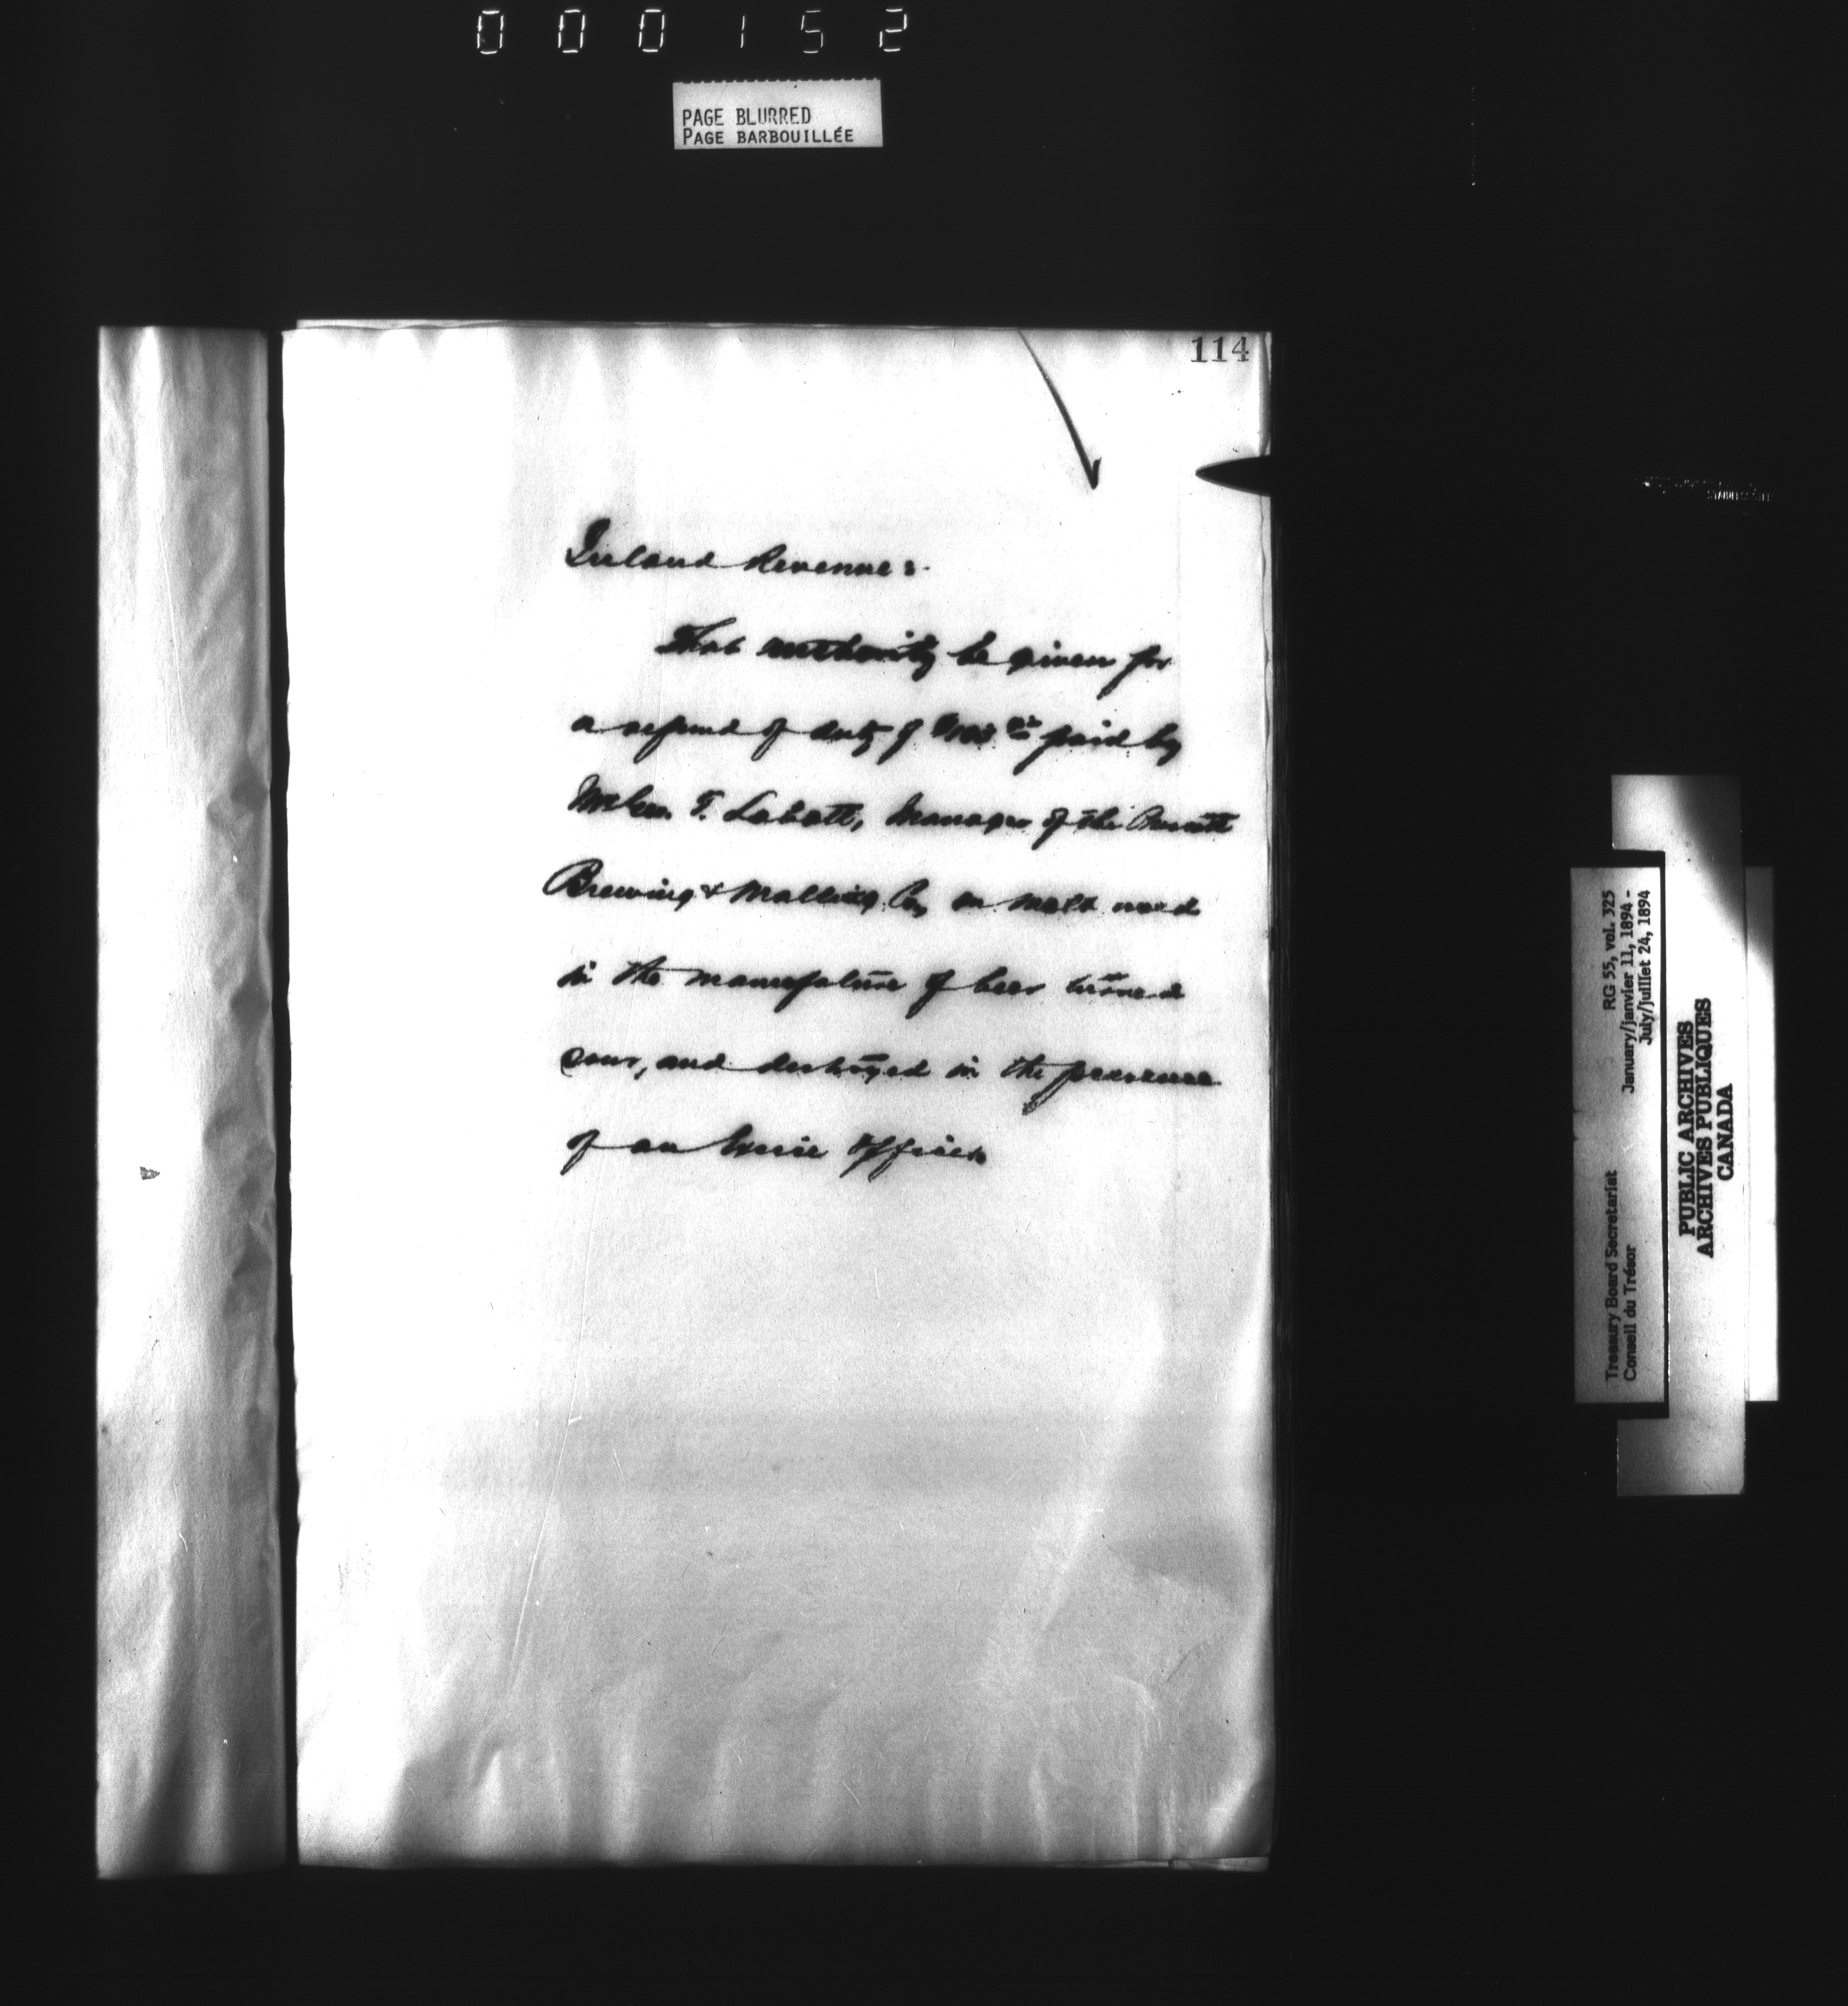 000152
PAGE BLURRED
PAGE BARBOUILLÉE
114
Inland Revenue:
That authority be given for
a refund of duty of paid by
Mr Geo. T. Labatt, Manager of the Prescott
Brewing & Malting Co, on malt used
in the manufature of beer turned
sour, and destroyed in the presence
of an Excise Officer
Treasury Board Secretariat RG 55, vol. 325
Conseil du Trésor January/janvier 11, 1894 -
July/juillet 24, 1894
PUBLIC ARCHIVES
ARCHIVES PUBLIQUES
CANADA